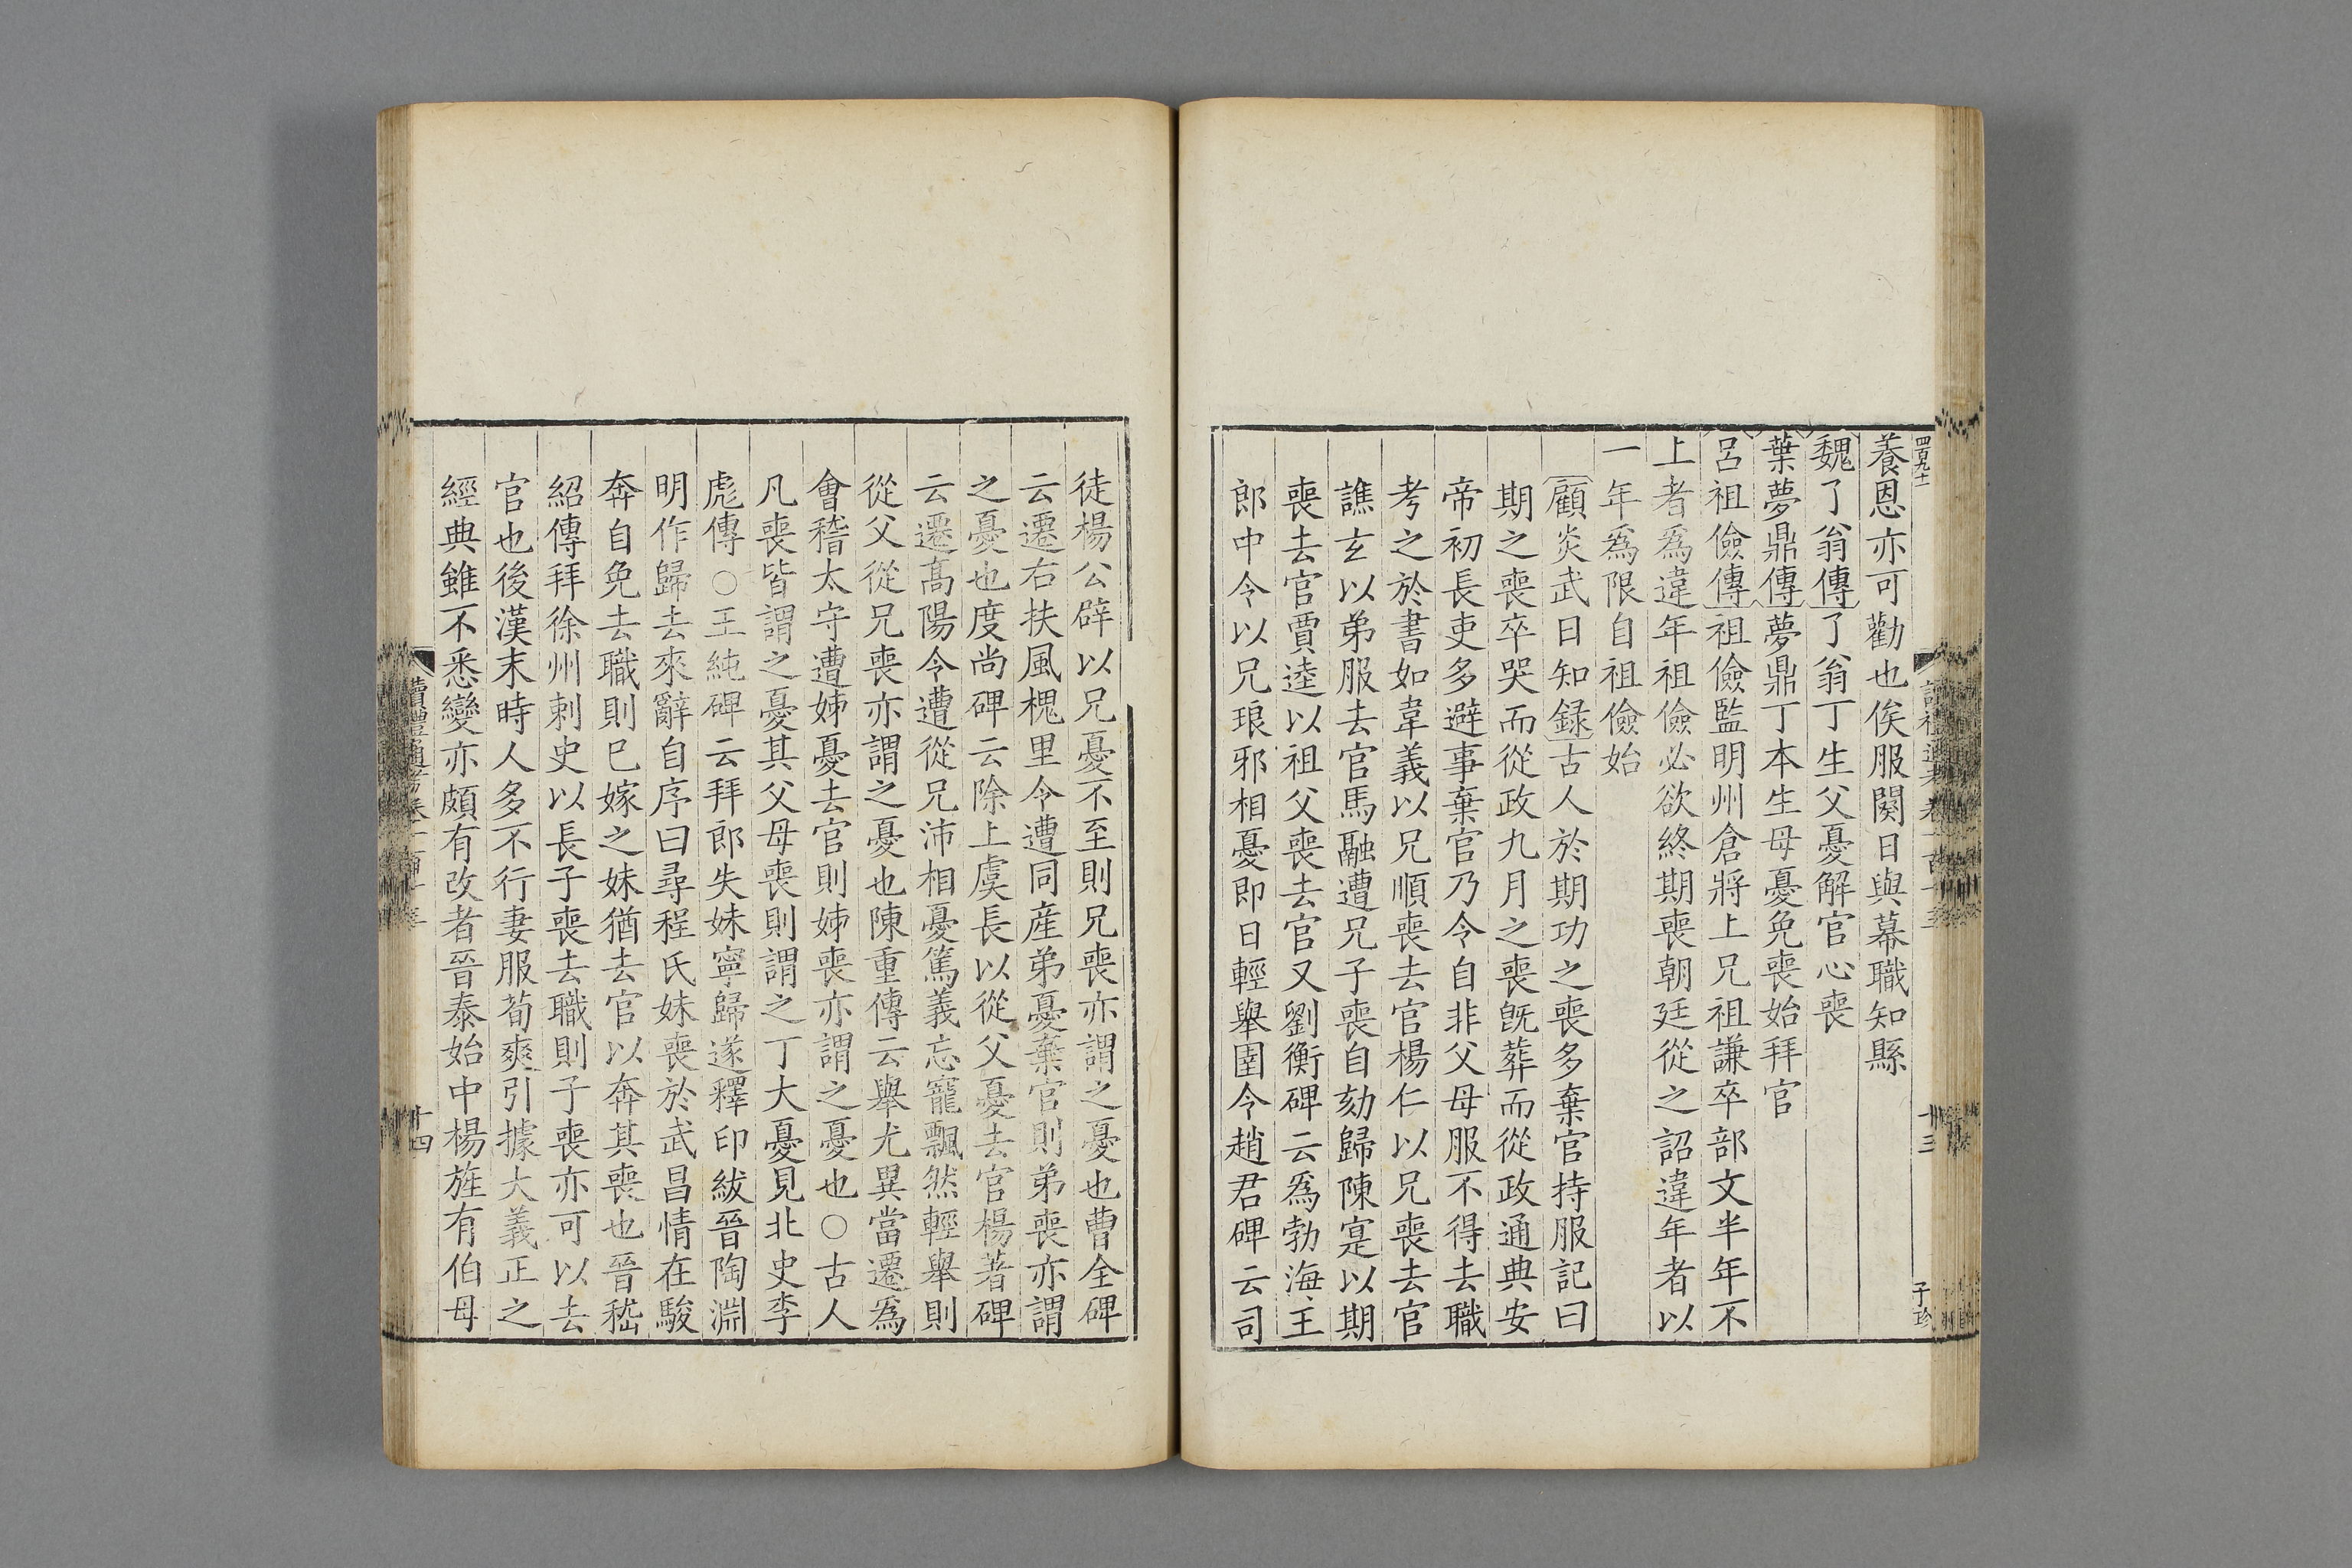 養恩亦可勸也俟服闋日與幕職知縣
魏了翁傳了翁丁生父憂解官心喪
葉夢鼎傳夢鼎丁本生母憂免喪始拜官
呂祖儉傳祖儉監明州倉將上兄祖謙卒部文半年不
上者爲違年祖儉必欲終期喪朝廷從之詔違年者以
一年爲限自祖儉始
顧炎武日知録古人於期功之喪多棄官持服記曰
期之喪卒哭而從政九月之喪旣葬而從政通典安
帝初長吏多避事棄官乃令自非父母服不得去職
考之於書如韋義以兄順喪去官楊仁以兄喪去官
譙玄以弟服去官馬融遭兄子喪自劾歸陳寔以期
喪去官賈逵以祖父喪去官又劉衡碑云爲勃海王
郎中令以兄琅邪相憂即日輕舉圉令趙君碑云司
四百九十一
十三
子珍
徒楊公辟以兄憂不至則兄喪亦謂之憂也曹全碑
云遷右扶風槐里令遭同産弟憂棄官則弟喪亦謂
之憂也度尚碑云除上虞長以從父憂去官楊著碑
云遷高陽令遭從兄沛相憂篤義忘寵飄然輕舉則
從父從兄喪亦謂之憂也陳重傳云舉尤異當遷爲
會稽太守遭姊憂去官則姊喪亦謂之憂也○古人
凡喪皆謂之憂其父母喪則謂之丁大憂見北史李
彪傳○王純碑云拜郎失妹寧歸遂釋印紱晉陶淵
明作歸去來辭自序曰尋程氏妹喪於武昌情在駿
奔自免去職則已嫁之妹猶去官以奔其喪也晉嵇
紹傳拜徐州刺史以長子喪去職則子喪亦可以去
官也後漢末時人多不行妻服荀爽引據大義正之
經典雖不悉變亦頗有改者晉泰始中楊旌有伯母
讀禮通考卷一百十三
十四